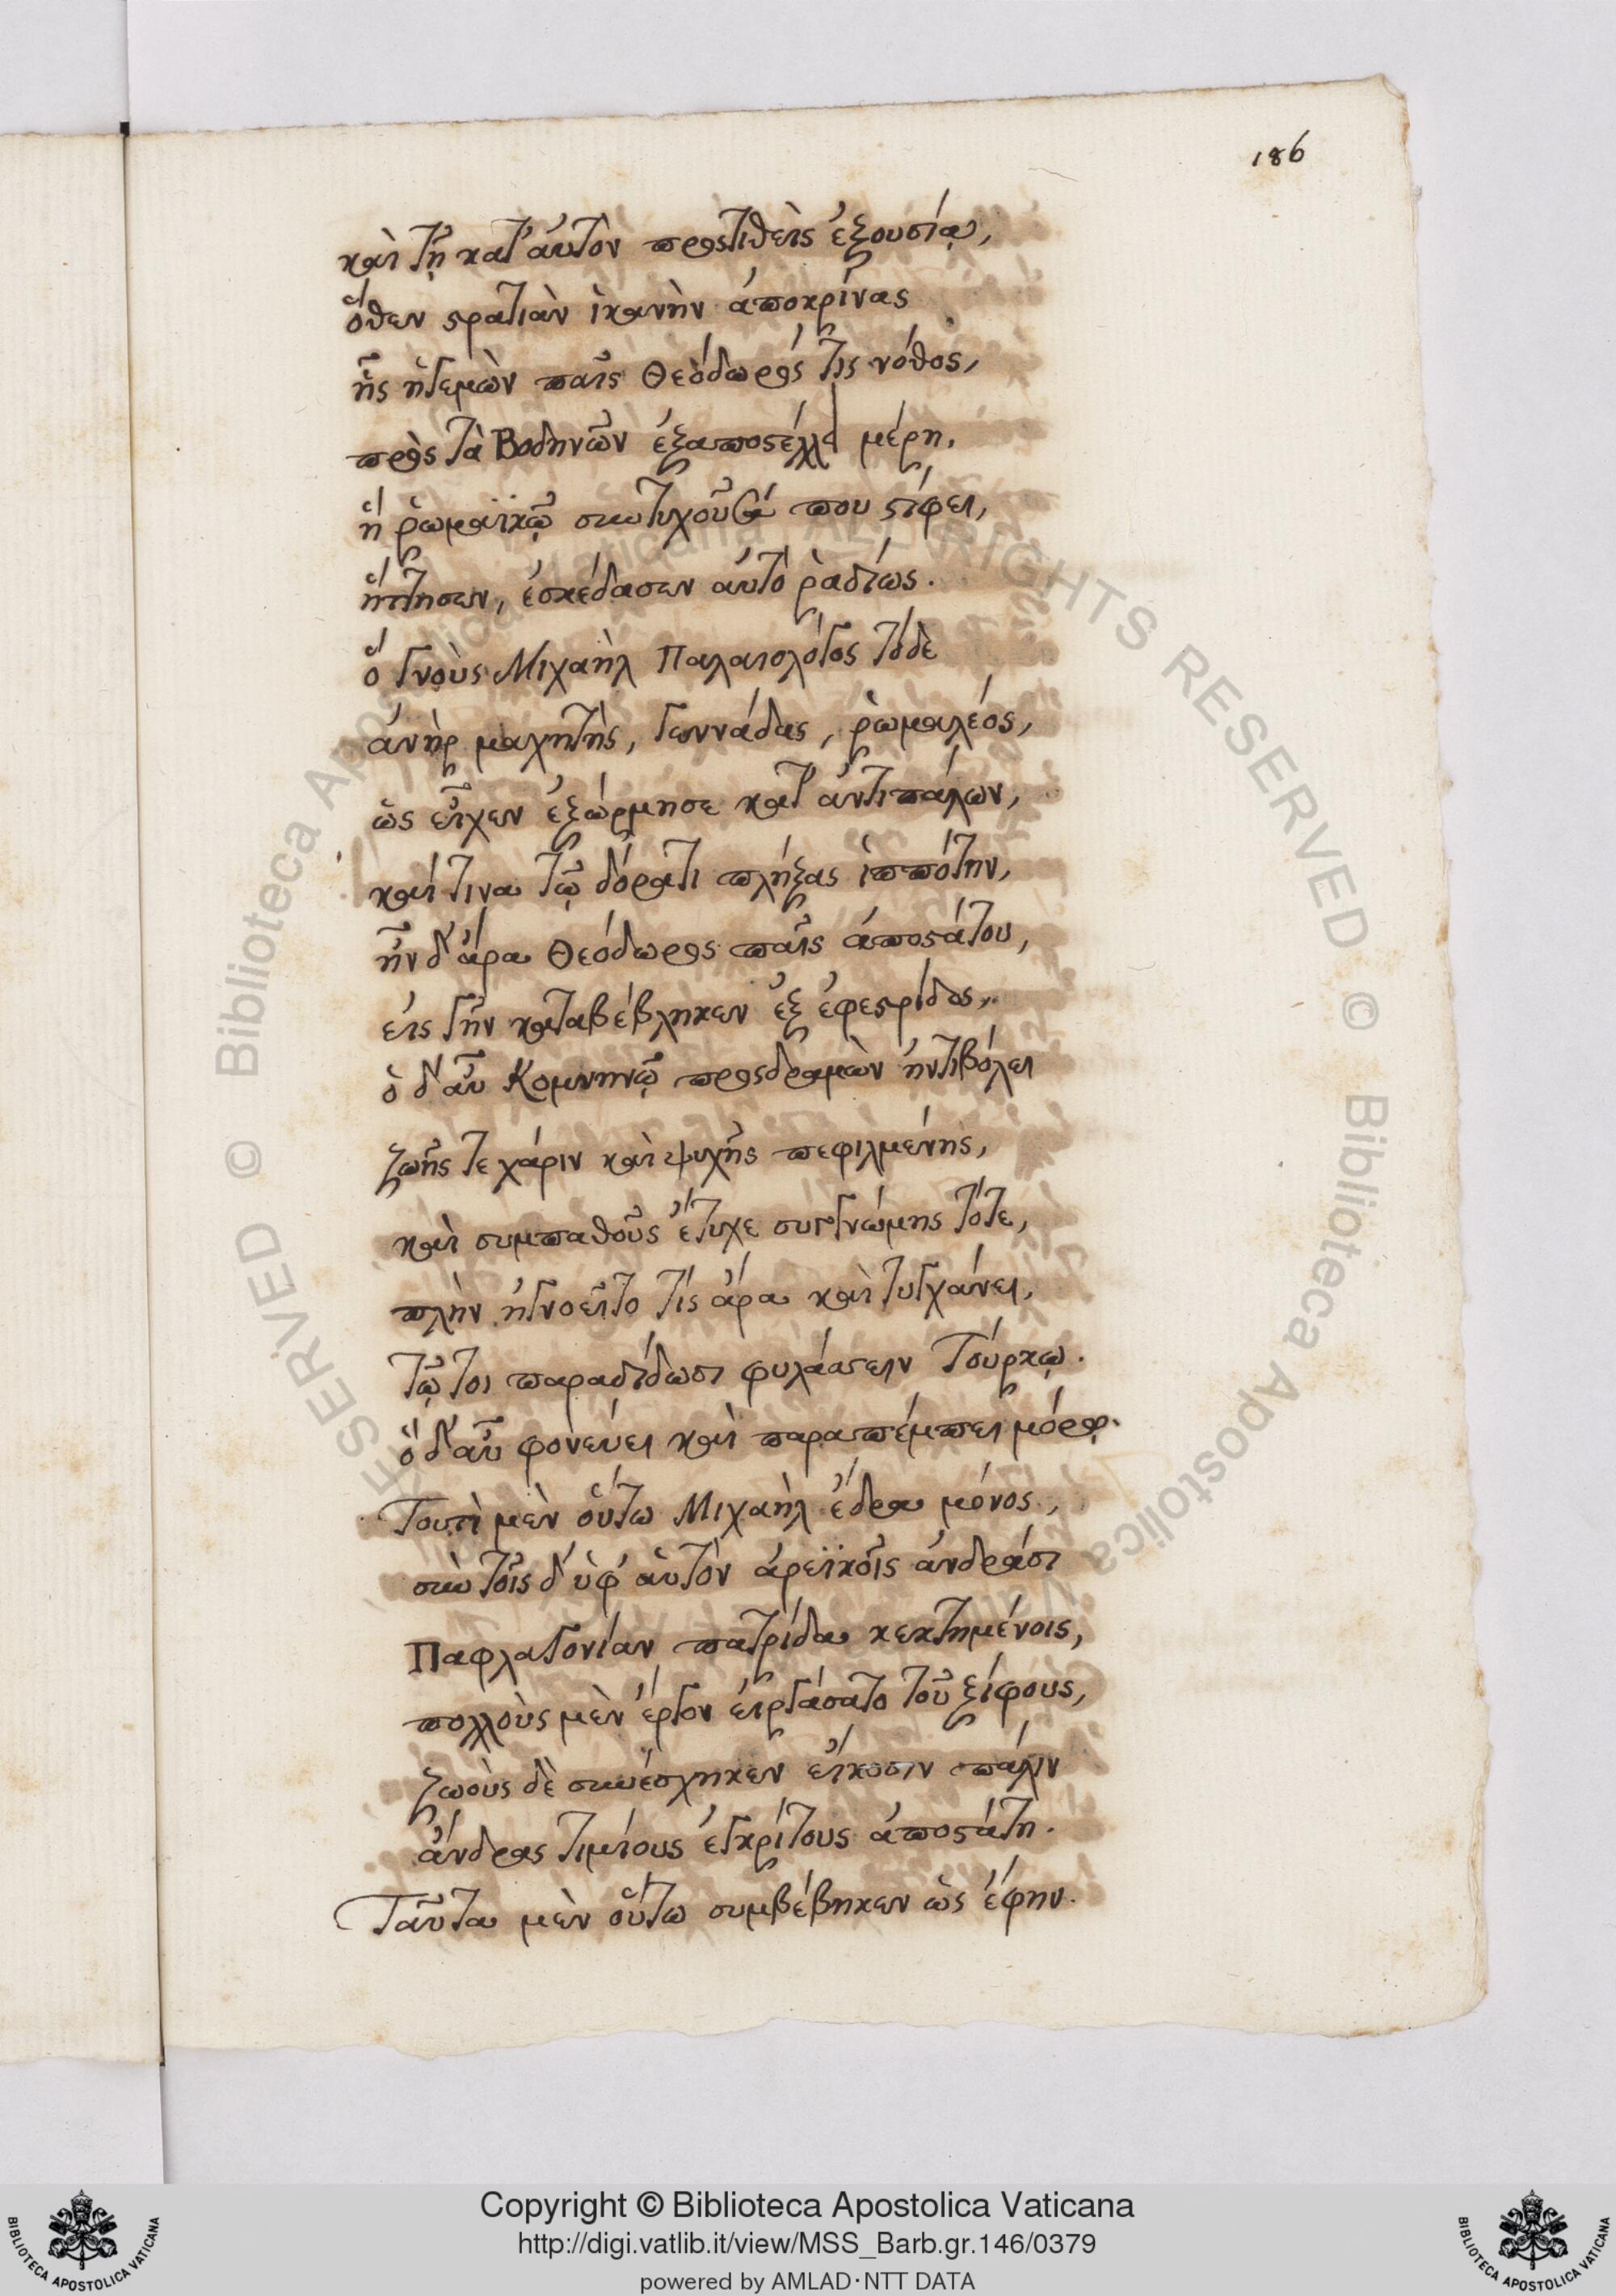 186
καὶ τῇ κατ' αὐτὸν προςτιθεὶς ἐξουσίᾳ,
ὅθεν στρατιὰν ἱκανὴν ἀποκρίνας
ἧς ἡγεμὼν παῖς Θεόδωρός τις νόθος,
πρὸς τὰ Βοδηνῶν ἐξαποστέλλει μέρη.
ἣ ῥωμαϊκῷ συντυχοῦσά που στίφει,
ἥττησεν, ἐσκέδασεν αὐτὸ ῥαδίως.
ὃ γνοὺς Μιχαὴλ Παλαιολόγος τόδε
ἀνὴρ μαχητὴς, γεννάδας, ῥωμαλέος,
ὡς εἶχεν ἐξώρμησε κατ' ἀντιπάλων,
καί τινα τῷ δόρατι πλήξας ἱππότην,
ἦν δ' ἄρα Θεόδωρος παῖς ἀποστάτου,
εἰς γῆν καταβέβληκεν ἐξ ἐφεστρίδος.
ὁ δ' αὖ Κομνηνῷ προςδραμὼν ἠντιβόλει
ζωῆς τε χάριν καὶ ψυχῆς πεφιλμένης,
καὶ συμπαθοῦς ἔτυχε συγγνώμης τότε,
πλὴν ἠγνοεῖτο τίς ἄρα καὶ τυγχάνει,
τῷ τοι παραδίδωσι φυλάσσειν Τούρκῳ.
ὃ δ' αὖ φονεύει καὶ παραπέμπει μόρῳ.
Τουτὶ μὲν οὕτω Μιχαὴλ ἔδρα μόνος,
σὺν τοῖς δ' ὑφ' αὑτὸν ἀρεϊκοῖς ἀνδράσι
Παφλαγονίαν πατρίδα κεκτημένοις,
πολλοὺς μὲν ἔργον εἰργάσατο τοῦ ξίφους,
ζωοὺς δὲ συνέσχηκεν εἴκοσιν πάλιν
ἄνδρας τιμίους ἐγκρίτους ἀποστάτῃ.
Ταῦτα μὲν οὕτω συμβέβηκεν ὡς ἔφην.
Copyright © Biblioteca Apostolica Vaticana
http://digi.vatlib.it/view/MSS_Barb.gr.146/0379
powered by AMLAD·NTT DATA